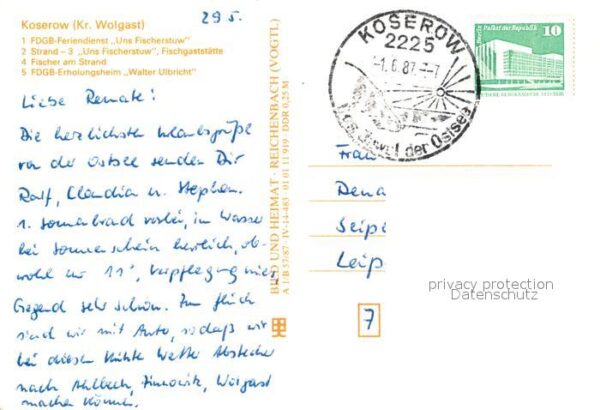 29 5.
Koserow (Kr. Wolgast)
1 FDGB-Feriendienst „Uns Fischerstuw"
2 Strand – 3 „Uns Fischerstuw", Fischgaststätte
4 Fischer am Strand
5 FDGB-Erholungsheim „Walter Ulbricht"
Liebe Renate!
Die herzlichsten Urlaubsgrüße
von der Ostsee senden Dir
Ralf, Claudia u. Stephan.
1. Sonnenbrand vorbei, im Wasser
bei Sonnenschein herrlich, ob-
wohl nur 11°, Verpflegung
Gegend sehr schön. Zum Glück
sind wir mit Auto, sodaß wir
bei diesem Wetter Abstecher
nach Ahlbeck, Zinnowitz, Wolgast
machen können.
BILD UND HEIMAT · REICHENBACH (VOGTL)
A 1/B 57/87 · IV-14-483 · 01 01 11 919 · DDR 0,25 M
KOSEROW
2225
-1.6.87.-7
der Ostsee
10
Frau
Rena
Leip
7
privacy protection
Datenschutz